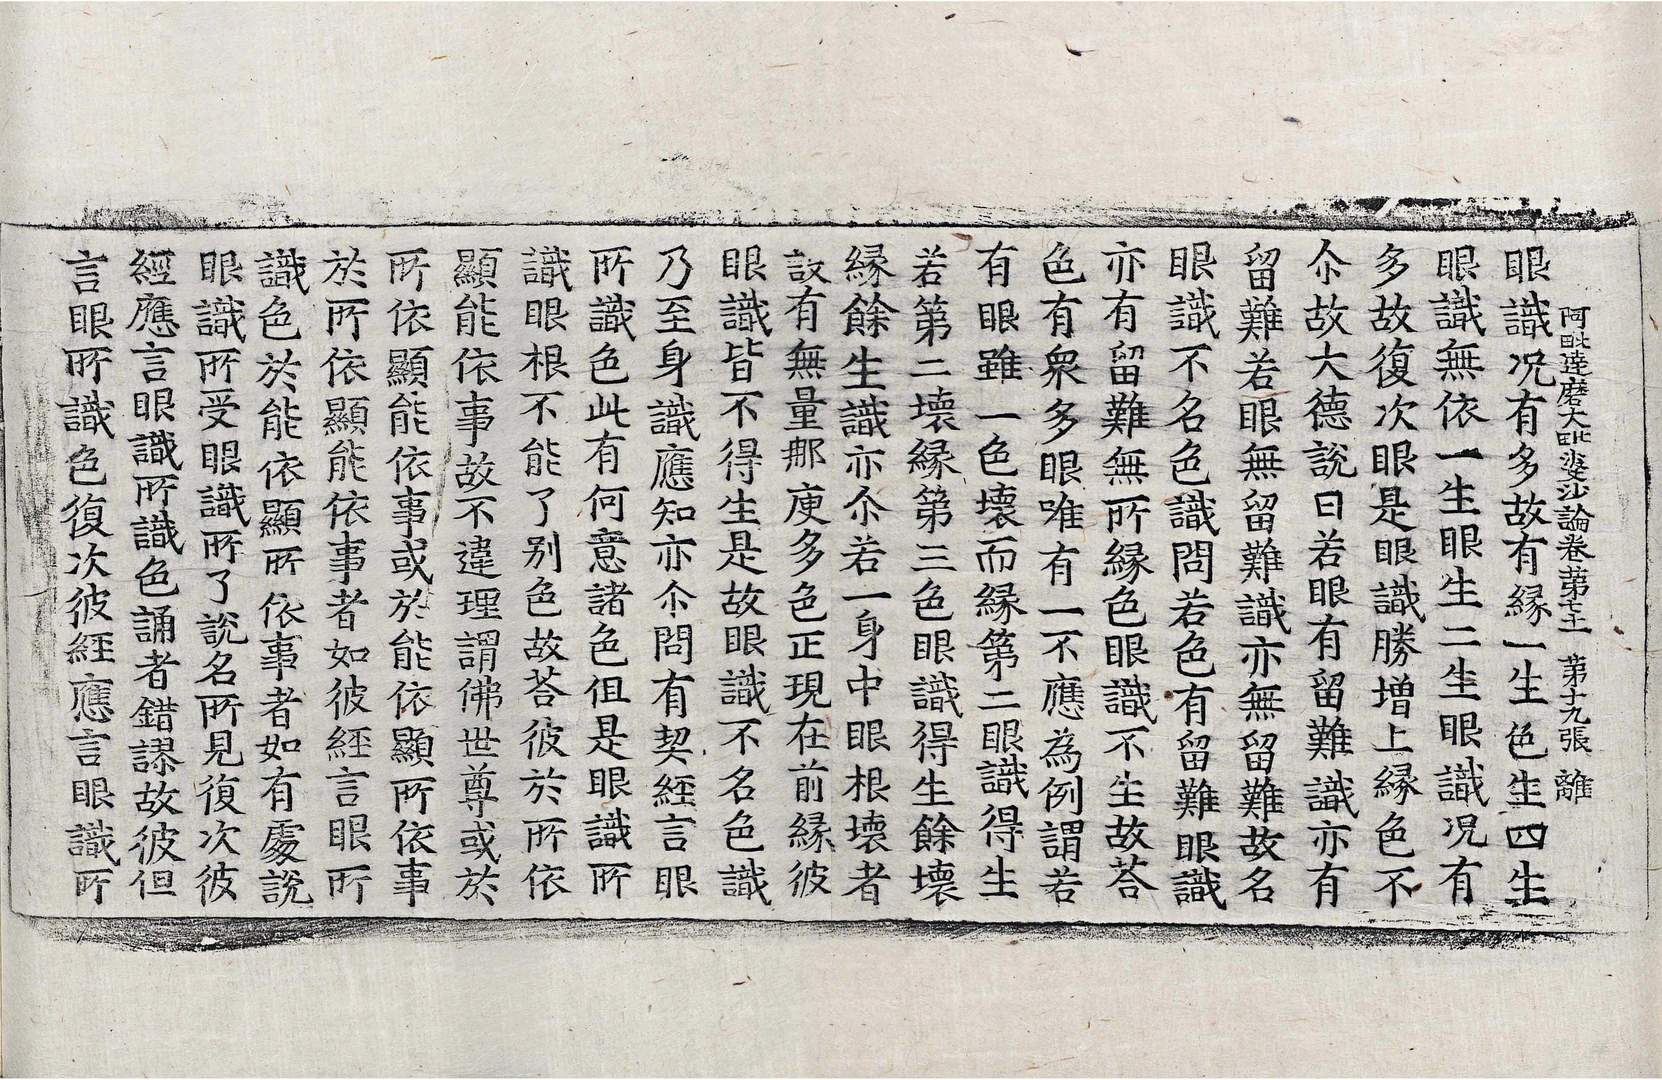 阿毗達磨大毗婆沙論卷第七十一 第十九張 離
眼識況有多故有緣一生色生四生
眼識無依一生眼生二生眼識況有
多故復次眼是眼識勝增上緣色不
尒故大德說曰若眼有留難識亦有
留難若眼無留難識亦無留難故名
眼識不名色識問若色有留難眼識
亦有留難無所緣色眼識不生故荅
色有衆多眼唯有一不應為例謂若
有眼雖一色壞而緣第二眼識得生
若第二壞緣第三色眼識得生餘壞
緣餘生識亦尒若一身中眼根壞者
設有無量郍庾多色正現在前緣彼
眼識皆不得生是故眼識不名色識
乃至身識應知亦尒問有契經言眼
所識色此有何意諸色但是眼識所
識眼根不能了別色故荅彼於所依
顯能依事故不違理謂佛世尊或於
所依顯能依事或於能依顯所依事
於所依顯能依事者如彼經言眼所
識色於能依顯所依事者如有處說
眼識所受眼識所了說名所見復次彼
經應言眼識所識色誦者錯謬故彼但
言眼所識色復次彼經應言眼識所